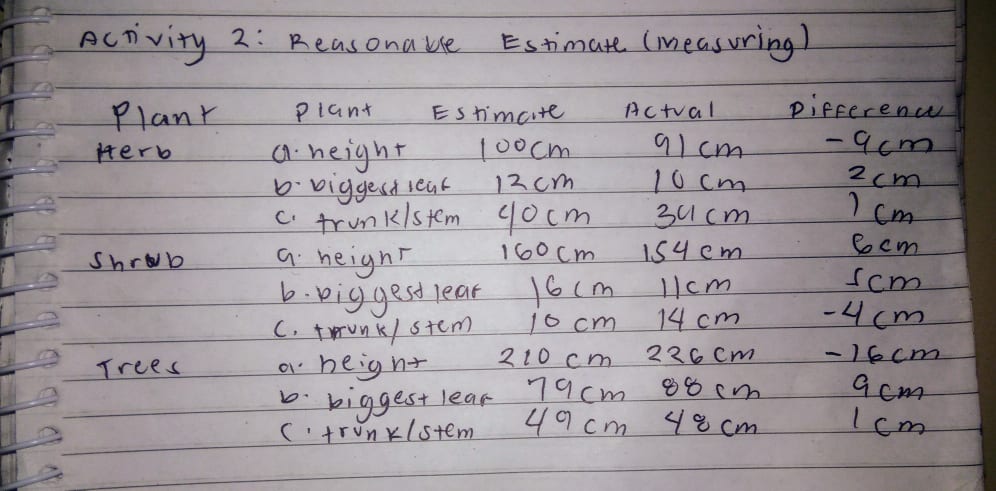 Activity 2: Reasonable Estimate (measuring)
Plant Plant Estimate Actual Difference
Herb a. height 100cm 91cm -9cm
b. biggest leaf 12cm 10cm 2cm
c. trunk/stem 40cm cm 1cm
Shrub a. height 160cm 154cm 6cm
b. biggest leaf 16cm 11cm 5cm
c. trunk/stem 10cm 14cm -4cm
Trees a. height 210cm 226cm -16cm
b. biggest leaf 79cm 88cm 9cm
c. trunk/stem 49cm 48cm 1cm